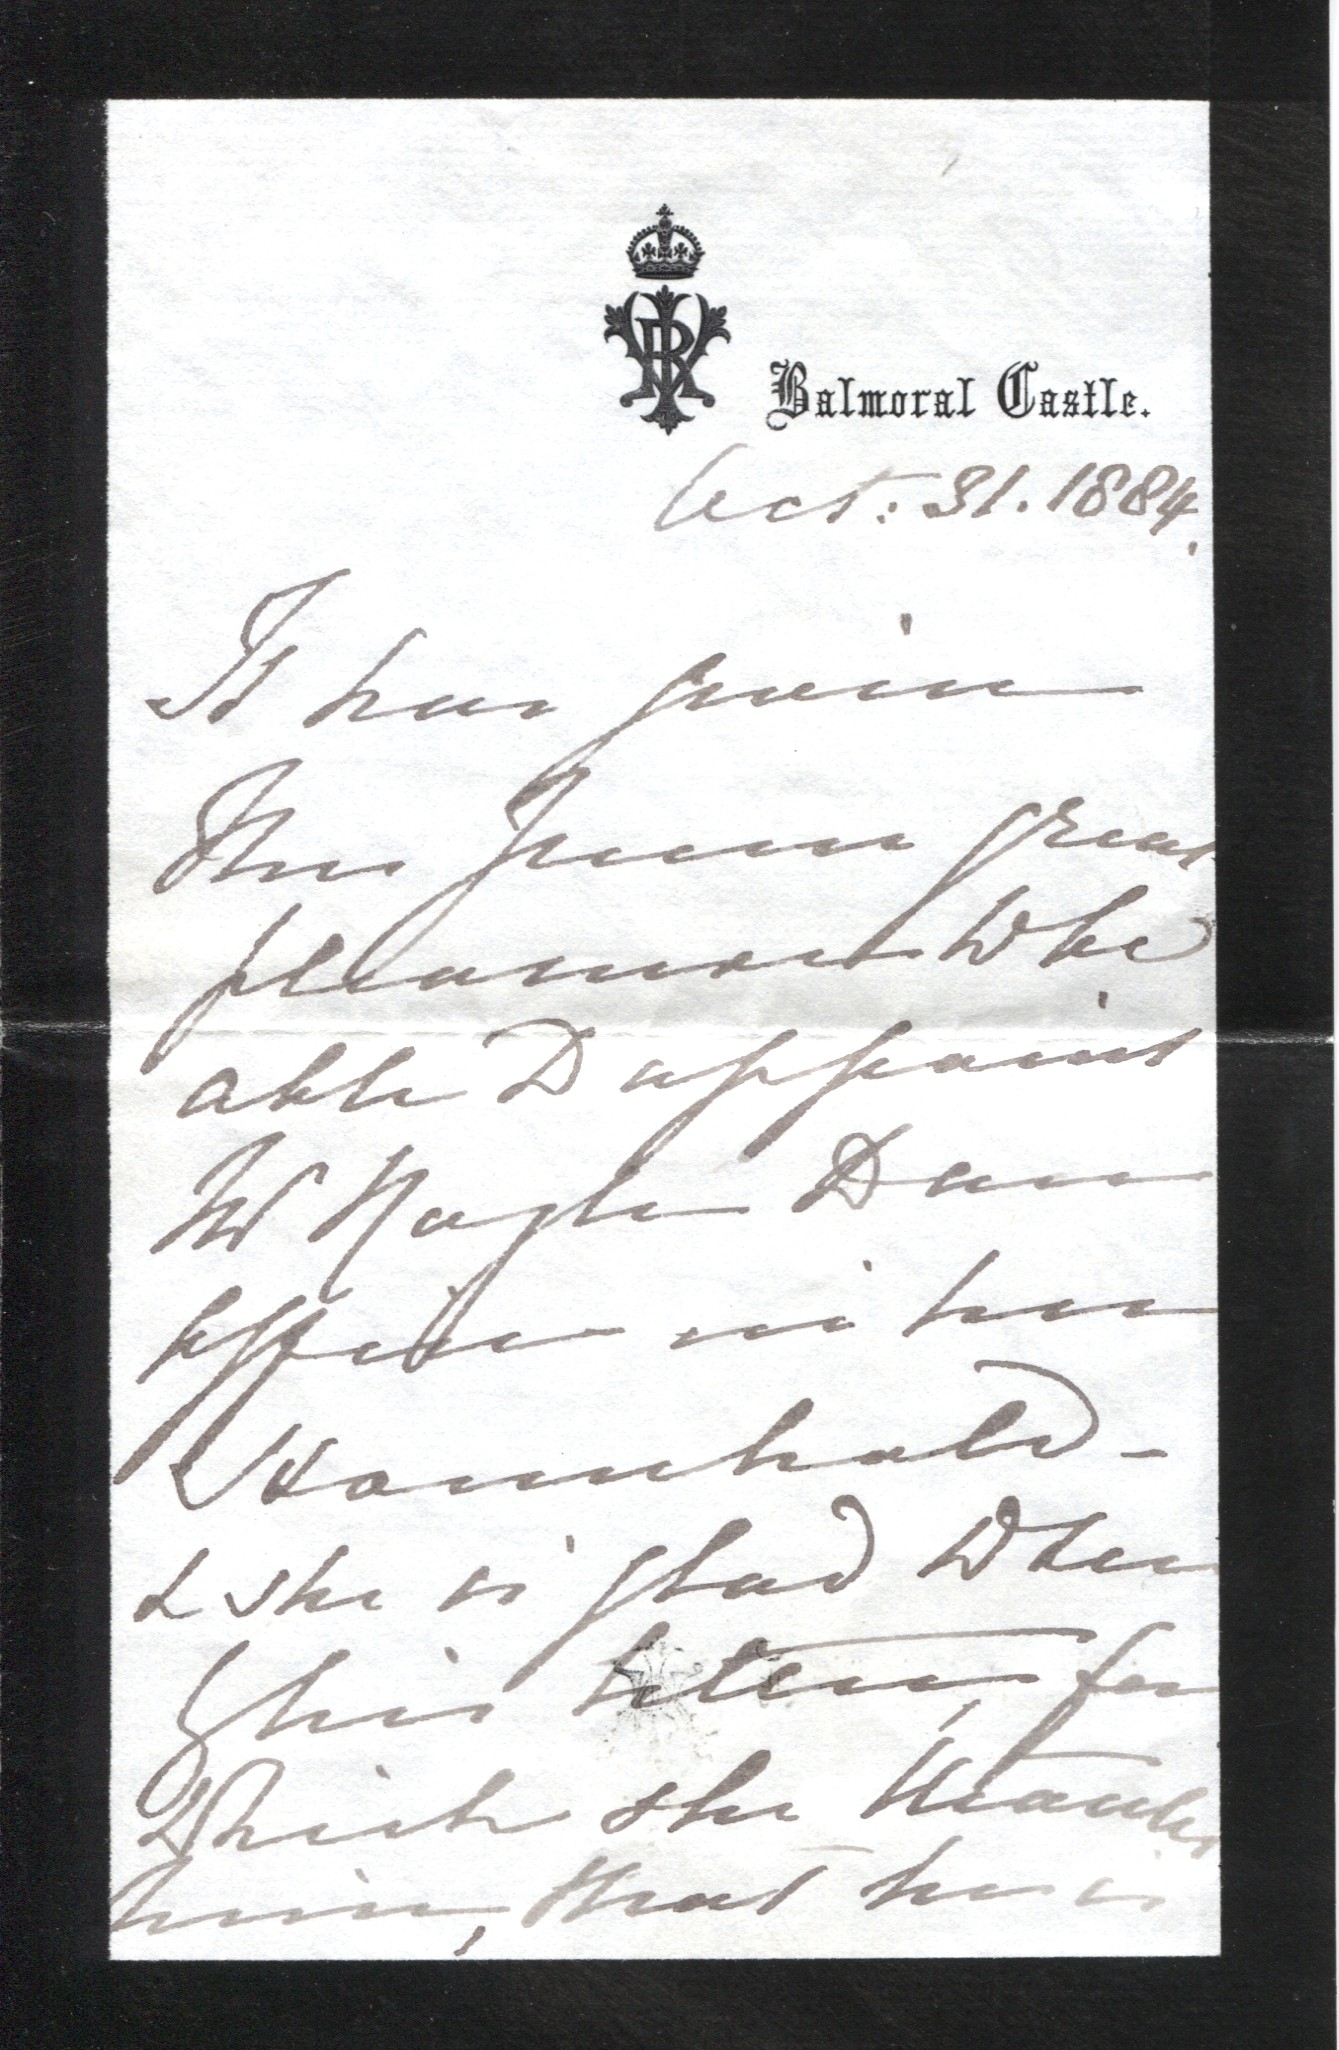 VRI
Balmoral Castle.
Oct: 31. 1884.
It has given
the Queen great
pleasure to be
able to appoint
Mr Nagle to an
office in her
Household –
& she is glad to see
by his letter, for
which she thanks
him, that he is